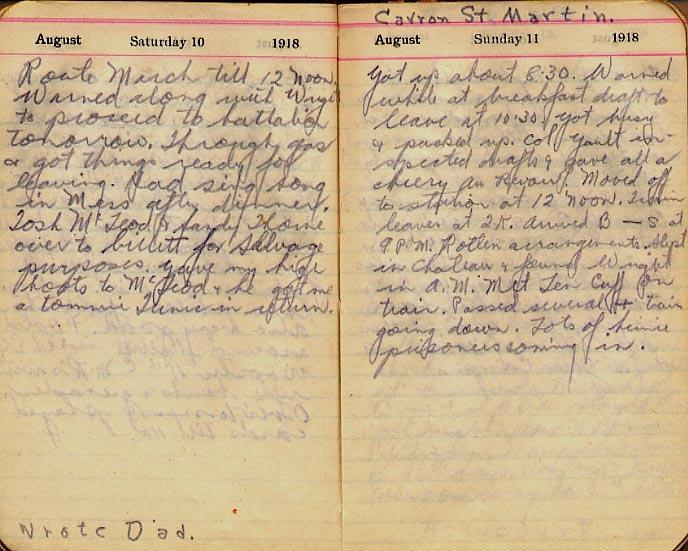 August Saturday 10 1918
Route March till 12 Noon.
Warned along with Wright
to proceed to battalion
tomorrow. Through gas
& got things ready for
leaving. Had sing song
in Mess after dinner.
Tosh McLeod & Sandy Horne
over to billett for Salvage
purposes. Gave my high
boots to McLeod & he got me
a tommie Tunic in return.
Wrote Dad.
Carron St. Martin.
August Sunday 11 1918
Got up about 8.30. Warned
while at breakfast draft to
leave at 10.30. Got busy
& packed up. Col. Yault in-
spected drafts & gave all a
cheery Au Revoir. Moved off
to station at 12 Noon. Train
leaves at 2 K. Arrived B — S at
9 P.M. Rotten arrangements. Slept
in Chateau & found Wright
in A.M. Met Len Cuff on
train. Passed several train
going down. Lots of heinie
prisoners coming in.